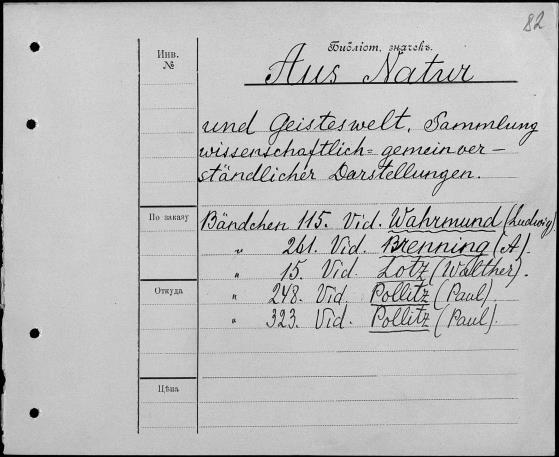 82
Инв.
№
Библіот. значекъ.
Aus Natur
und Geisteswelt. Sammlung
wissenschaftlich= gemeinver-
ständlicher Darstellungen.
По заказу
Bändchen 115. Vid. Wahrmund (Ludwig).
" 261. Vid. Brenning (A).
" 15. Vid. Lotz (Walther).
Откуда
" 248. Vid. Pollitz (Paul).
" 323. Vid. Pollitz (Paul).
Цѣна